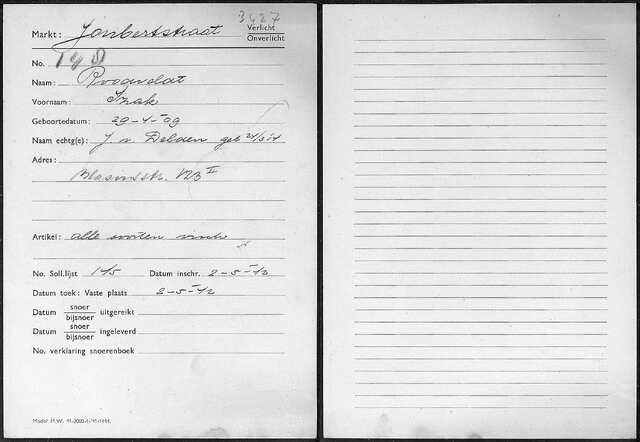 3427
Markt: Joubertstraat
Verlicht
Onverlicht
No. 148
Naam: Roodveldt
Voornaam: Izak
Geboortedatum: 29-1-'09
Naam echtg(e): J v. Delden geb
Adres:
II
Artikel: alle soorten visch
No. Soll.lijst 145 Datum inschr. 2-5-'42
Datum toek: Vaste plaats 2-5-'42
Datum snoer bijsnoer uitgereikt
Datum snoer bijsnoer ingeleverd
No. verklaring snoerenboek
Model M.W.